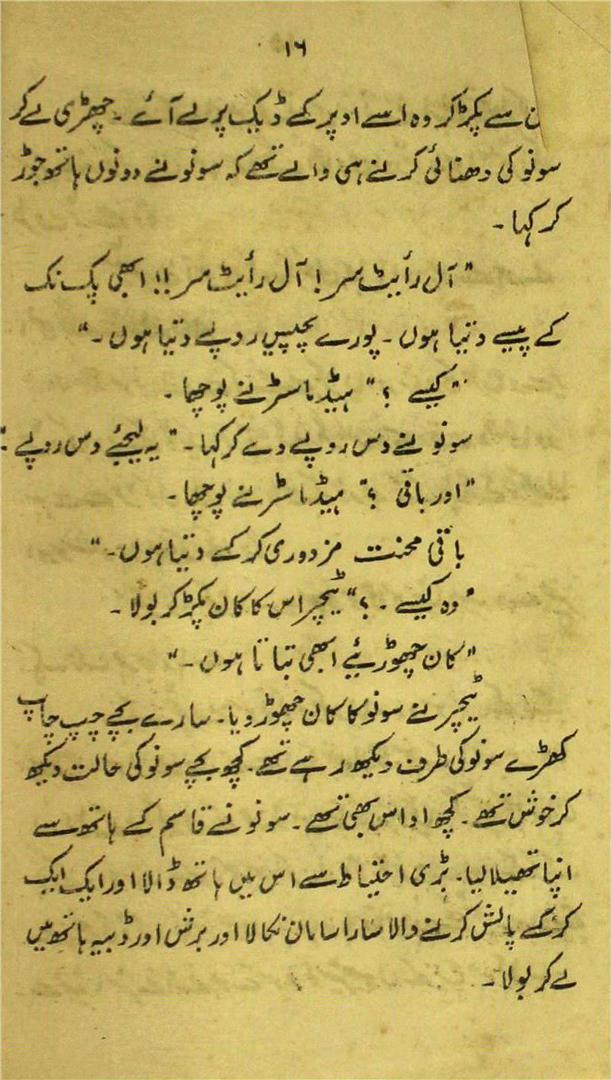 ۱۶
سے پکڑ کر وہ اسے اوپر کے ڈیک پر لے آئے ۔ چھڑی لے کر
سونو کی دھنائی کرنے ہی والے تھے کہ سونو نے دونوں ہاتھ جوڑ
کر کہا ۔
"آل رائیٹ سر! آل رائیٹ سر!! ابھی پک نک
کے پیسے دیتا ہوں ۔ پورے پچیس روپے دیتا ہوں ۔"
"کیسے ؟" ہیڈ ماسٹر نے پوچھا ۔
سونو نے دس روپے دے کر کہا ۔ "یہ لیجئے دس روپے ۔"
"اور باقی ؟" ہیڈ ماسٹر نے پوچھا ۔
باقی محنت مزدوری کر کے دیتا ہوں ۔"
"وہ کیسے ۔ ؟" ٹیچر اس کا کان پکڑ کر بولا ۔
"کان چھوڑیئے ابھی بتاتا ہوں ۔"
ٹیچر نے سونو کا کان چھوڑ دیا ۔ سارے بچے چپ چاپ
کھڑے سونو کی طرف دیکھ رہے تھے ۔ کچھ بچے سونو کی حالت دیکھ
کر خوش تھے ۔ کچھ اداس بھی تھے ۔ سونو نے قاسم کے ہاتھ سے
اپنا تھیلا لیا ۔ بڑی احتیاط سے اس میں ہاتھ ڈالا اور ایک ایک
کر کے پالش کرنے والا سارا سامان نکالا اور برش اور ڈبیہ ہاتھ میں
لے کر بولا ۔